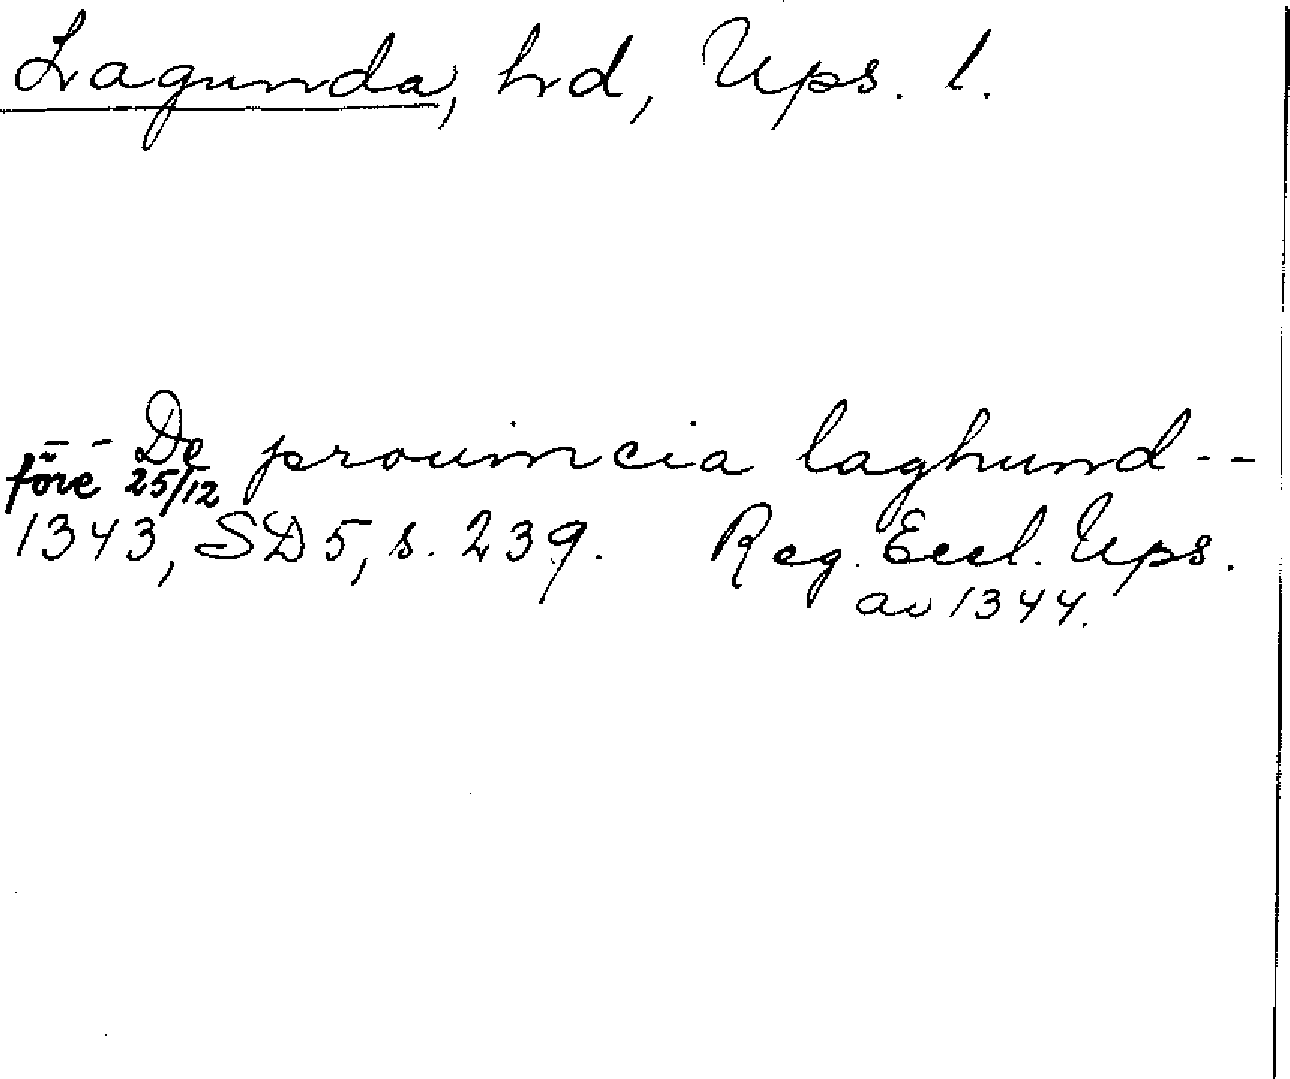 Lagunda, hd, Ups. l.
- - De prouincia laghund - -
före 25/12
1343, SD5, s. 239. Reg. Eccl. Ups.
av 1344.